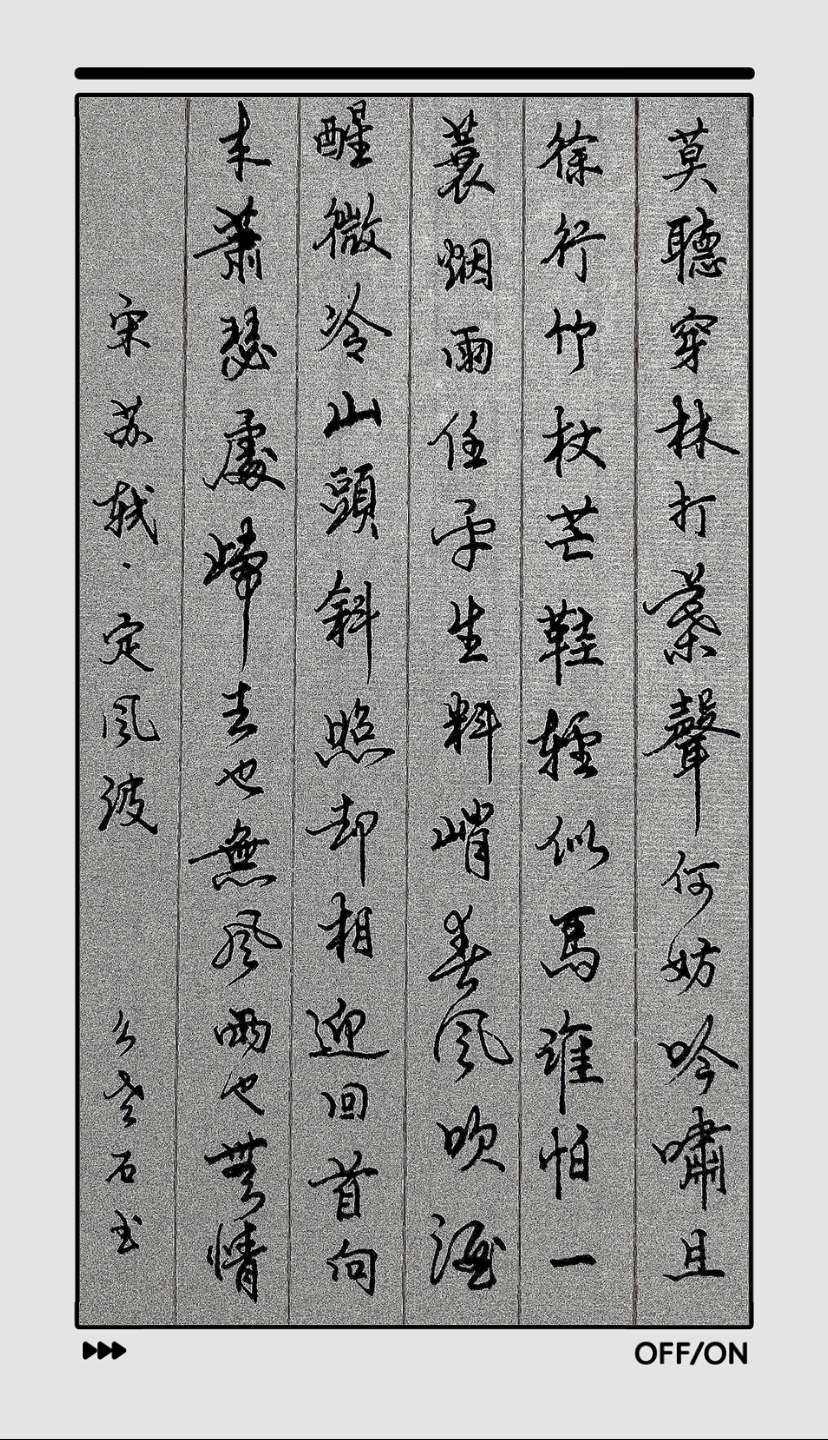 莫聽穿林打葉聲何妨吟嘯且
徐行竹杖芒鞋輕似馬誰怕一
蓑烟雨任平生料峭春風吹酒
醒微冷山頭斜照却相迎回首向
来蕭瑟處歸去也無風雨也無情
宋苏轼·定風波
石书
▸▸▸ OFF/ON